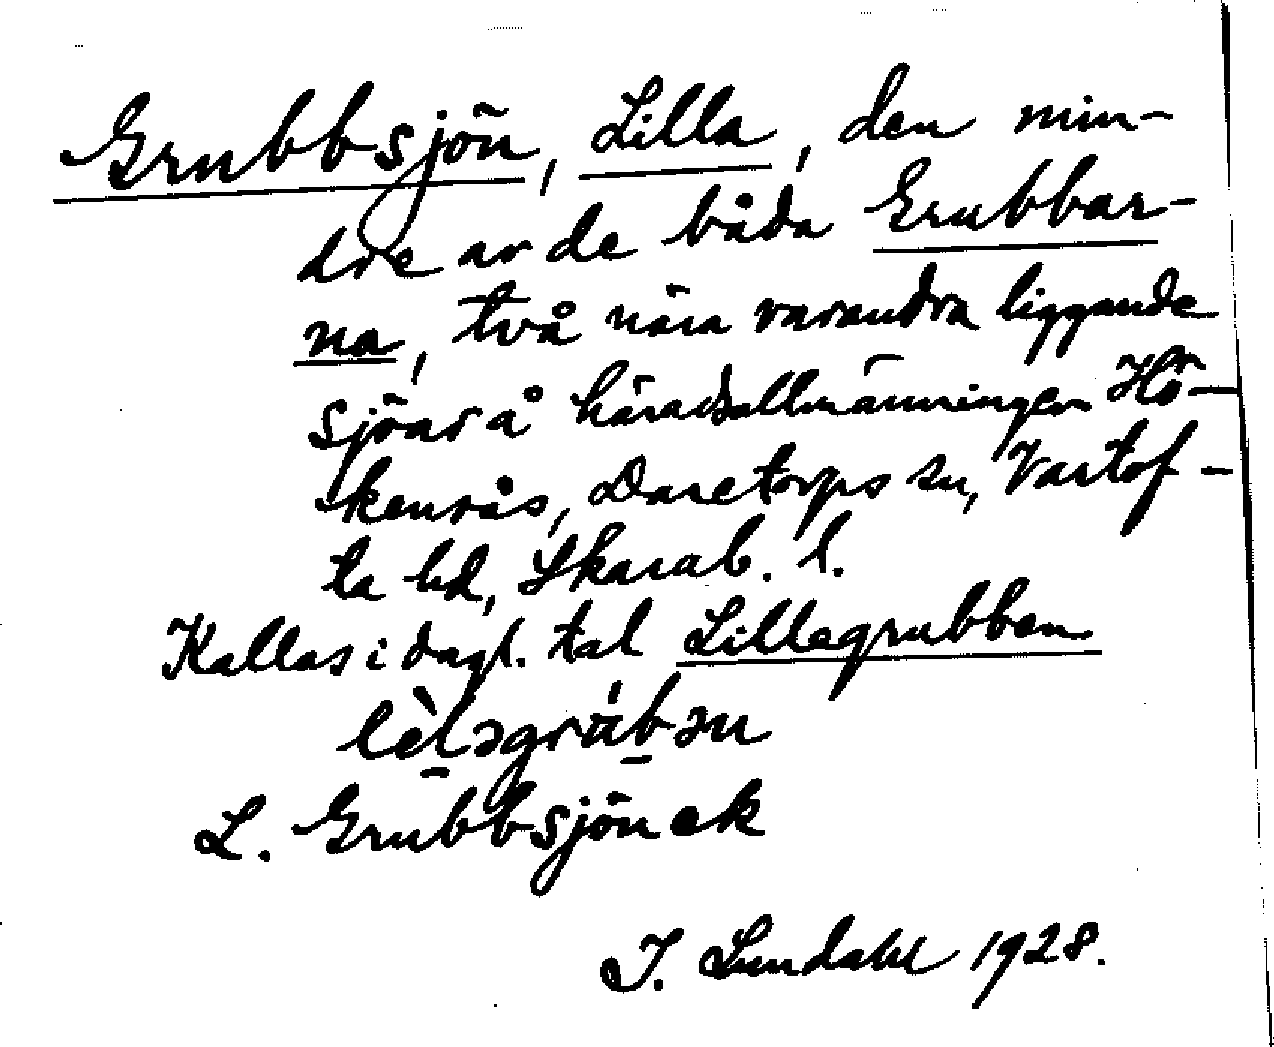 Grubbsjön, Lilla, den min-
dre av de båda Grubbar-
na, två nära varandra liggande
sjöar å häradsallmänningen Hö-
kensås, Daretorps sn, Vartof-
ta hd, Skarab. l.
Kallas i dagl. tal Lillegrubben
L. Grubbsjön ek
I. Lundahl 1928.